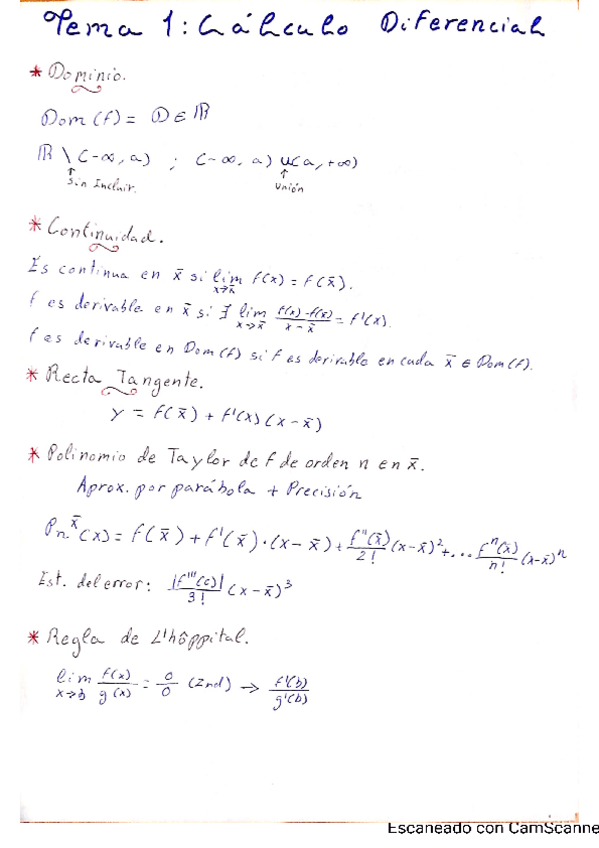 Tema 1: Cálculo Diferencial
* Dominio.
Dom (f) = D ∈ ℝ
ℝ \ (-∞, a) ; (-∞, a) ∪ (a, +∞)
↑ ↑
Sin Incluir. Unión
* Continuidad.
Es continua en x̄ si lim x→x̄ f(x) = f(x̄).
f es derivable en x̄ si ∃ lim x→x̄ (f(x) - f(x̄))/(x - x̄) = f'(x).
f es derivable en Dom(f) si f es derivable en cada x̄ ∈ Dom(f).
* Recta Tangente.
y = f(x̄) + f'(x)(x - x̄)
* Polinomio de Taylor de f de orden n en x̄.
Aprox. por parábola + Precisión
Pn.^x̄ (x) = f(x̄) + f'(x̄)·(x - x̄) + f''(x̄)/2! (x - x̄)² + ... f^n(x̄)/n! (x - x̄)^n
Est. del error: |f'''(c)|/3! (x - x̄)³
* Regla de L'hôppital.
lim x→b f(x)/g(x) = 0/0 (Ind) → f'(b)/g'(b)
Escaneado con CamScanne